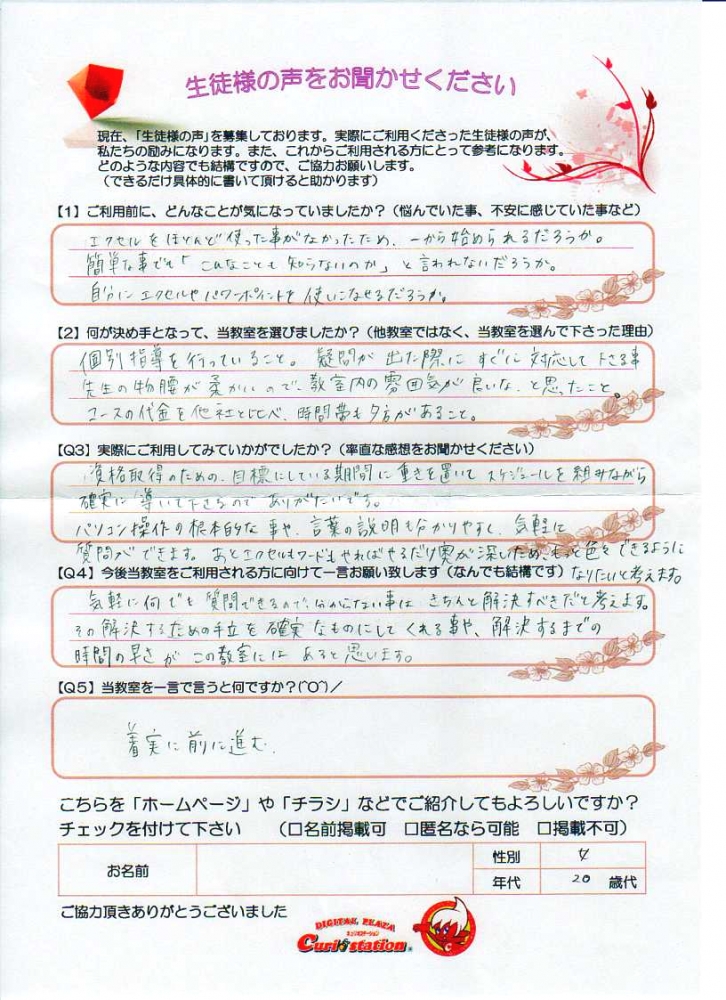 生徒様の声をお聞かせください
現在、「生徒様の声」を募集しております。実際にご利用くださった生徒様の声が、
私たちの励みになります。また、これからご利用される方にとって参考になります。
どのような内容でも結構ですので、ご協力お願いします。
(できるだけ具体的に書いて頂けると助かります)
【1】ご利用前に、どんなことが気になっていましたか?(悩んでいた事、不安に感じていた事など)
エクセルをほとんど使った事がなかったため、一から始められるだろうか。
簡単な事でも「こんなことも知らないのか」と言われないだろうか。
自分にエクセルやパワーポイントを使いこなせるだろうか。
【2】何が決め手となって、当教室を選びましたか?(他教室ではなく、当教室を選んで下さった理由)
個別指導を行っていること。疑問が出た際にすぐに対応して下さる事
先生の物腰が柔かいので、教室内の雰囲気が良いな、と思ったこと。
コースの代金を他社と比べ、時間帯も夕方があること。
【Q3】実際にご利用してみていかがでしたか?(率直な感想をお聞かせください)
資格取得のための、目標にしている期間に重きを置いてスケジュールを組みながら
確実に導いて下さるのでありがたいです。
パソコン操作の根本的な事や、言葉の説明もわかりやすく、気軽に
質問ができます。あとエクセルもワードもやればやるだけ奥が深いため、もっと色々できるように
なりたいと考えます。
【Q4】今後当教室をご利用される方に向けて一言お願い致します(なんでも結構です)
気軽に何でも質問できるので、分からない事はきちんと解決すべきだと考えます。
その解決するための手立を確実なものにしてくれる事や、解決するまでの
時間の早さがこの教室にはあると思います。
【Q5】当教室を一言で言うと何ですか?(^O^)/
着実に前に進む
こちらを「ホームページ」や「チラシ」などでご紹介してもよろしいですか?
チェックを付けて下さい (□名前掲載可 □匿名なら可能 □掲載不可)
お名前
性別 女
年代 20 歳代
ご協力頂きありがとうございました
DIGITAL PLAZA
キュリオステーション
Curio station